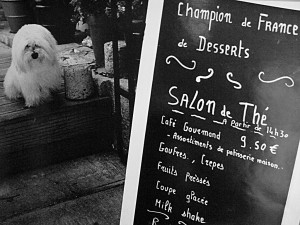 Champion de France
de Desserts
SALON de Thé
A Partir de 14h30
Café Gourmand 9.50 €
- Assortiments de patisserie maison.-
Gaufres, Crepes
Fruits Pressés
Coupe glacée
Milk shake